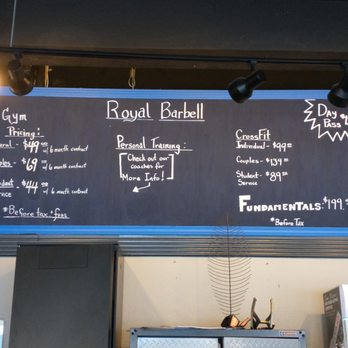 Royal Barbell
Gym
Pricing:
eral - $49.00
w/ 6 month contract
ples - $69.00
w/ 6 month contract
udent - $44.00
w/ 6 month contract
*Before tax + fees
Personal Training:
Check out our
coaches for
More Info!
CrossFit
Individual - $99.00
Couples - $139.00
Student - $89.00
Service
Fundamentals: $199
*Before Tax
Day
Pass